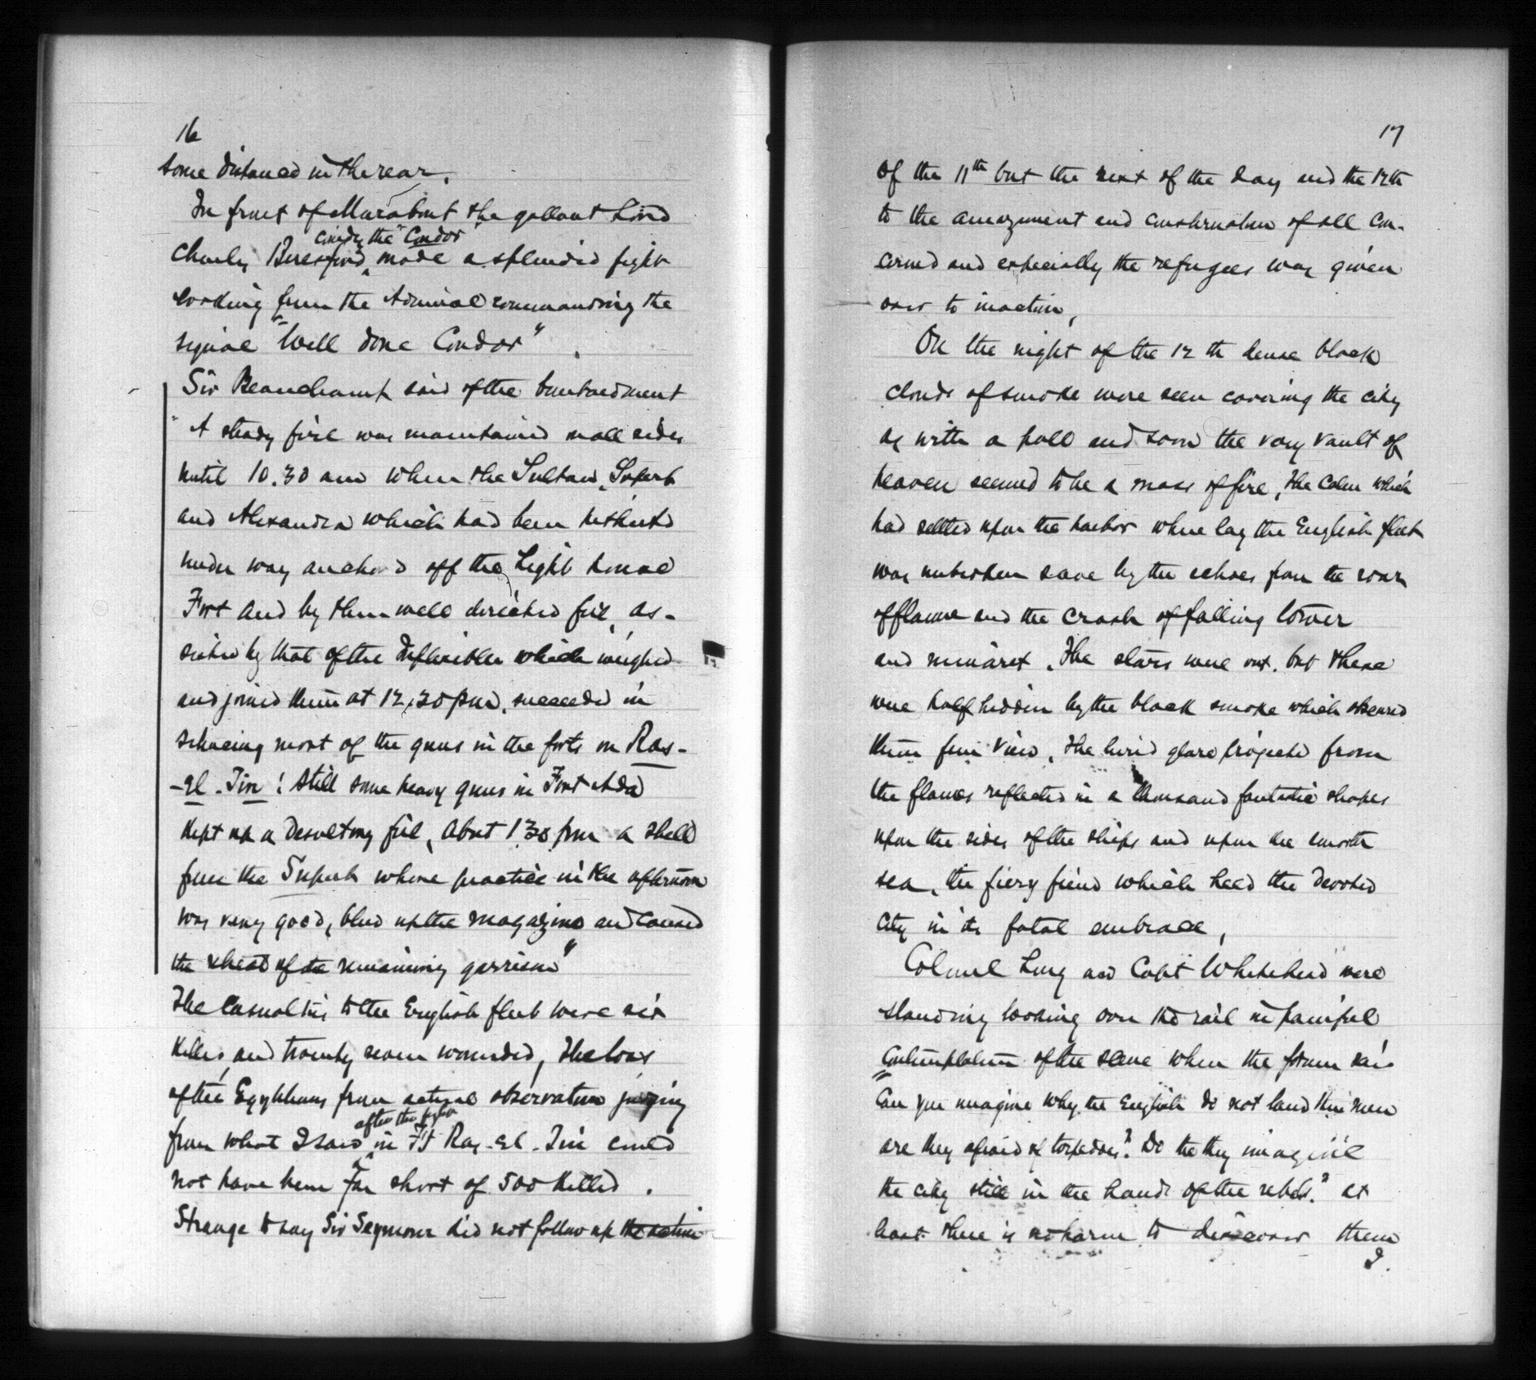 16
some distance in the rear.
In front of Marabout the gallant Lord
comdg the "Condor"
Charley Beresford made a splendid fight
from the Admiral commanding the
signal "Well done Condor"
Sir Beauchamp said of the bombardment
"A steady fire was maintained on all sides
until 10.30 am when the Sultan, Superb
and Alexandra which had been hitherto
under way anchored off the Light house
Fort and by their well directed fire, as-
sisted by that of the Inflexible which weighed
and joined them at 12.30 pm, succeeded in
silencing most of the guns in the forts on Ras-
-el-Tin! Still some heavy guns in Fort Ada
kept up a desultory fire, About 1 30 pm a shell
from the Superb whose practice in the afternoon
was very good, blew up the magazine and caused
the retreat of the remaining garrison"
The casualties to the English fleet were six
killed, and twenty seven wounded, The loss
of the Egyptians from actual observation judging
after the fight
from what I saw in Ft Ras-el-Tin could
not have been far short of 500 killed.
Strange to say Sir Seymour did not follow up the action
17
of the 11th but the rest of the day and the 12th
to the amazement and consternation of all con-
cerned and especially the refugees was given
over to inaction,
On the night of the 12th dense black
clouds of smoke were seen covering the city
as with a pall and soon the very vault of
heaven seemed to be a mass of fire, The calm which
had settled upon the harbor where lay the English fleet
was unbroken save by the echoes from the roar
of flame and the crash of falling tower
and minaret. The stars were out, but these
were half hidden by the black smoke which obscured
them from view, The lurid glare projected from
the flames reflected in a thousand fantastic shapes
upon the sides of the ships and upon the smooth
sea, the fiery fiend which held the devoted
city in its fatal embrace,
Colonel Long and Capt Whitehead were
standing looking over the rail in painful
contemplation of the scene when the former said
"Can you imagine why the English do not land their men
are they afraid of torpedoes? Do the they imagine
the city still in the hands of the rebels?" at
least there is no harm to discover them
I.